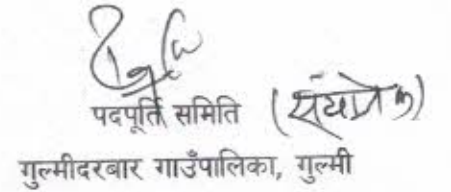 पदपूर्ति समिति (संयोजक)
गुल्मीदरबार गाउँपालिका, गुल्मी